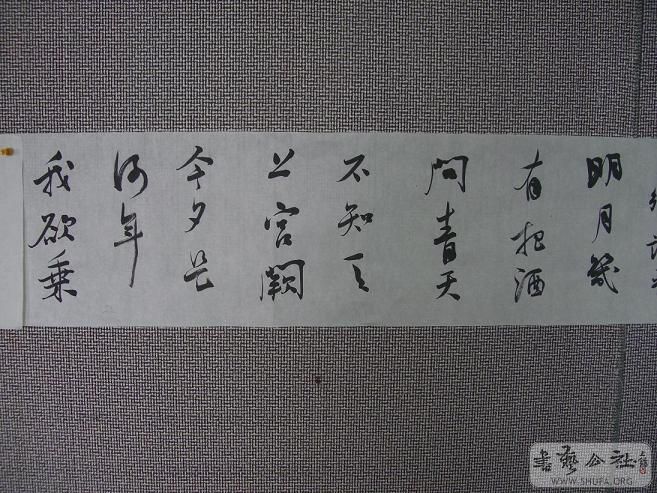 明月幾
有把酒
問青天
不知天
上宮闕
今夕是
何年
我欲乗
書藝公社
WWW.SHUFA.ORG